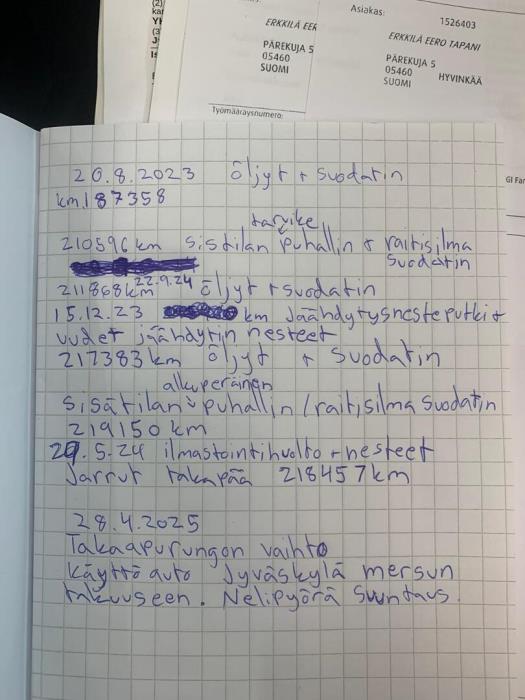 (2)
kar
Yl
(3
J
Is
ERKKILÄ EER
PÄREKUJA 5
05460
SUOMI
Työmääräysnumero:
Asiakas:
1526403
ERKKILÄ EERO TAPANI
PÄREKUJA 5
05460 HYVINKÄÄ
SUOMI
GI Far
20.8.2023 Öljyt + suodatin
km.187358
tarvike
210596 km Sistilan puhallin + raitisilma
suodatin
22.9.24
211868km Öljyt + suodatin
15.12.23 km Jäähdytysnesteputki +
uudet jäähdytin nesteet
217383 km Öljyt + suodatin
alkuperäinen
Sisätilan puhallin / raitisilma suodatin
219150 km
29.5.24 ilmastointihuolto + nesteet
Jarrut takapää 218457km
28.4.2025
Takaapurungon vaihto
Käyttö auto Jyväskylä mersun
takuuseen. Nelipyörä suuntaus.